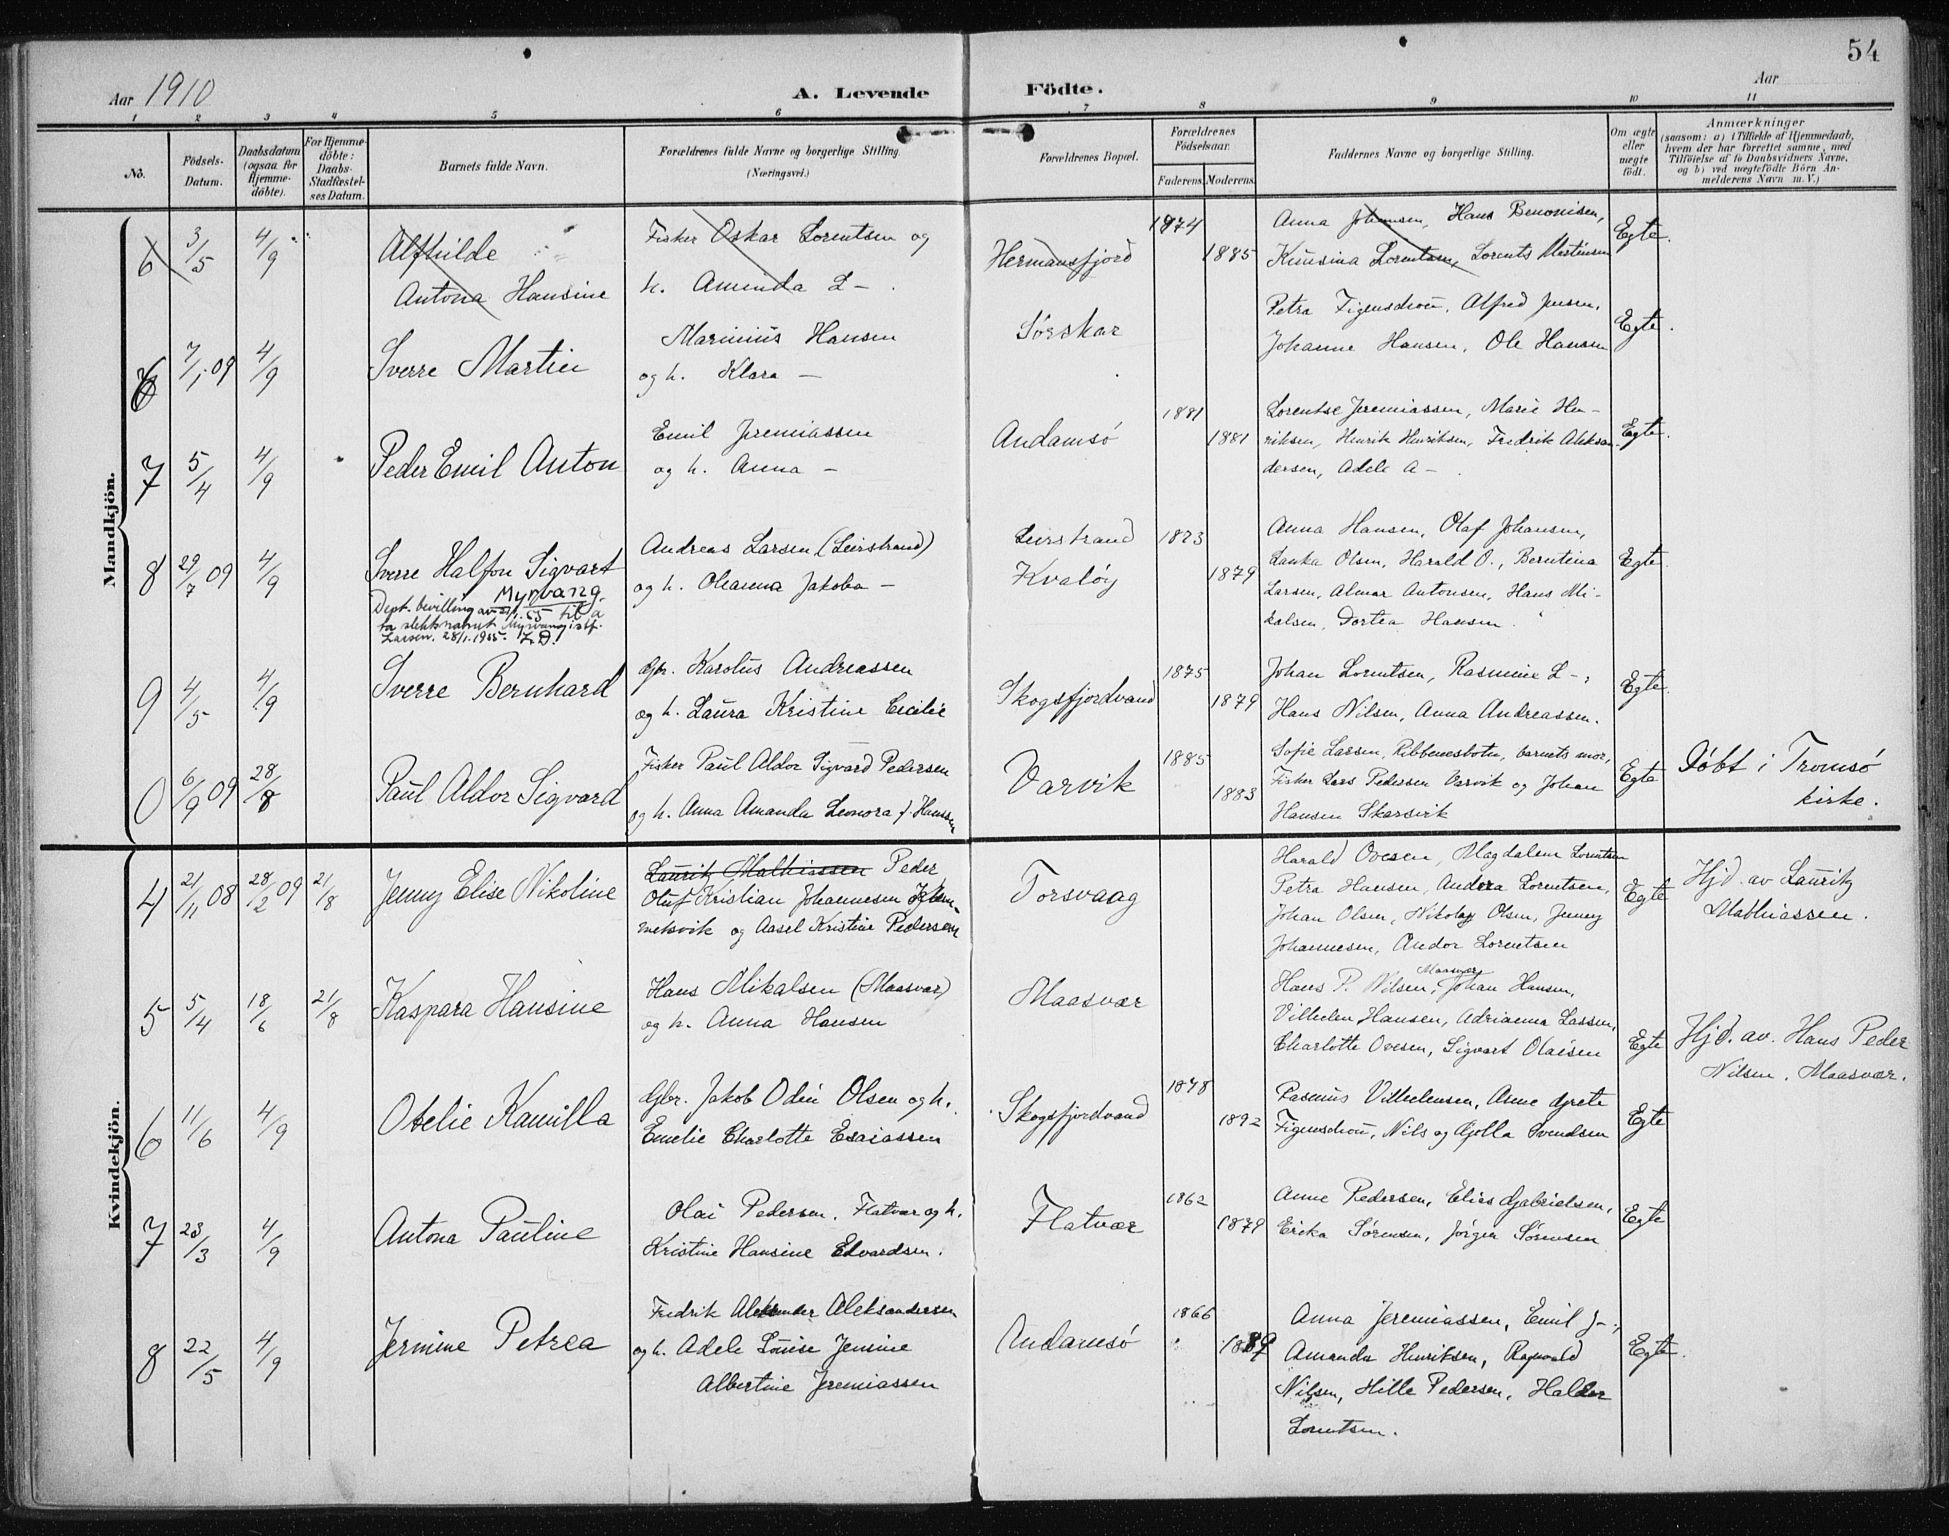 54
Aar 1910
A. Levende Födte.
Aar
1 2 3 4 5 6 7 8 9 10 11
No.
Födsels-Datum.
Daabsdatum (ogsaa for Hjemmedöbte).
For Hjemmedöbte: Daabs-Stadfæstelses Datum.
Barnets fulde Navn.
Forældrenes fulde Navne og borgerlige Stilling. (Næringsvei.)
Forældrenes Bopæl.
Forældrenes Födselsaar.
Faderens. Moderens.
Faddernes Navne og borgerlige Stilling.
Om ægte eller uægte födt.
Anmærkninger
(saasom: a) i Tilfælde af Hjemmedaab, hvem der har forrettet samme, med Tilföielse af to Daabsvidners Navne, og b) ved uægtefödte Börn Anmelderens Navn m. V.)
Mandkjön.
6 3/5 4/9
Alfhilde
Antona Hansine
Fisker Oskar Lorentsen og
h. Aminda L-
Hermansfjord
1874 1885
Anna Johansen, Hans Benonisen,
Lorentsen, Lorents Mortensen
Egte.
6 7/1 09 4/9
Sverre Martin
Marinius Hansen
og h. Klara -
Sørskar
Petra Figenschou, Alfred Jensen,
Johanne Hansen, Ole Hansen
Egte.
7 5/4 4/9
Peder Emil Anton
Emil Jeremiassen
og h. Anna -
Andamsø
1881 1881
Lorentse Jeremiassen, Marie Hen-
riksen, Henrik Henriksen, Fredrik Aleksan-
dersen, Adele A-
Egte.
8 29/7 09 4/9
Sverre Halfon Sigvart
Myrvang.
Dept. bevilling av 21/1.55 til å
ta slektsnamnet Myrvang istf.
Larsen. 28/1.1955. L.D.
Andreas Larsen (Leirstrand)
og h. Oleanna Jakoba -
Leirstrand
Kvaløy
1873 1879
Anna Hansen, Olaf Johansen,
Lanka Olsen, Harald O., Berntina
Larsen, Almar Antonsen, Hans Mi-
kalsen, Dortea Hansen.
Egte.
9 4/5 4/9
Sverre Bernhard
Gbr. Karolus Andreassen
og h. Laura Kristine Cecilie
Skogsfjordvand
1875 1879
Johan Lorentsen, Rasmine L-,
Hans Nilsen, Anna Andreassen.
Egte.
0 6/9 09 28/8
Paul Aldor Sigvard
Fisker Paul Aldor Sigvard Pedersen
og h. Anna Amanda Leonora f. Hanssen
Varvik
1885 1883
Sofie Larsen, Ribbenesbotn, barnets mor,
Fisker Lars Pedersen Varvik og Johan
Hansen Skarsvik
Egte
Døbt i Tromsø
kirke.
Kvindekjön.
4 21/11 08 28/2 09 21/8
Jenny Elise Nikoline
Lauritz Mathiassen Peder
Oluf Kristian Johannesen
og Aasel Kristine Pedersen
Torsvaag
Harald Ovesen, Magdalene Lorentsen
Petra Hansen, Andrea Lorentsen,
Johan Olsen, Nikolay Olsen, Jenny
Johannesen, Andor Lorentsen
Egte
Hjd. av Lauritz
Mathiassen.
5 5/4 18/6 21/8
Kaspara Hansine
Hans Mikalsen (Maasvær)
og h. Anna Hansen
Maasvær
Maasvær
Hans P. Nilsen, Johan Hansen,
Villielm Hansen, Adrianna Lassen,
Charlotte Ovesen, Sigvart Olaisen
Egte
Hjd. av. Hans Peder
Nilsen. Maasvær.
6 11/6 4/9
Otelie Kamilla
Gbr. Jakob Odin Olsen og h.
Emelie Charlotte Esaiassen
Skogsfjordvand
1878 1892
Rasmus Villielmsen, Anne Grete
Figenschou, Nils og Gjolla Svendsen
Egte
7 23/3 4/9
Antona Pauline
Olai Pedersen, Flatvær og h.
Kristine Hansine Edvardsen.
Flatvær
1862 1879
Anne Pedersen, Elias Gabrielsen,
Erika Sørensen, Jørgen Sørensen
Egte
8 22/5 4/9
Jermine Petrea
Fredrik Aleksander Aleksandersen
og h. Adele Louise Jenine
Albertine Jeremiassen
Andamsø
1866 1889
Anna Jeremiassen, Emil J-,
Amanda Henriksen, Ragnvald
Nilsen, Hille Pedersen, Haldor
Lorentsen.
Egte.